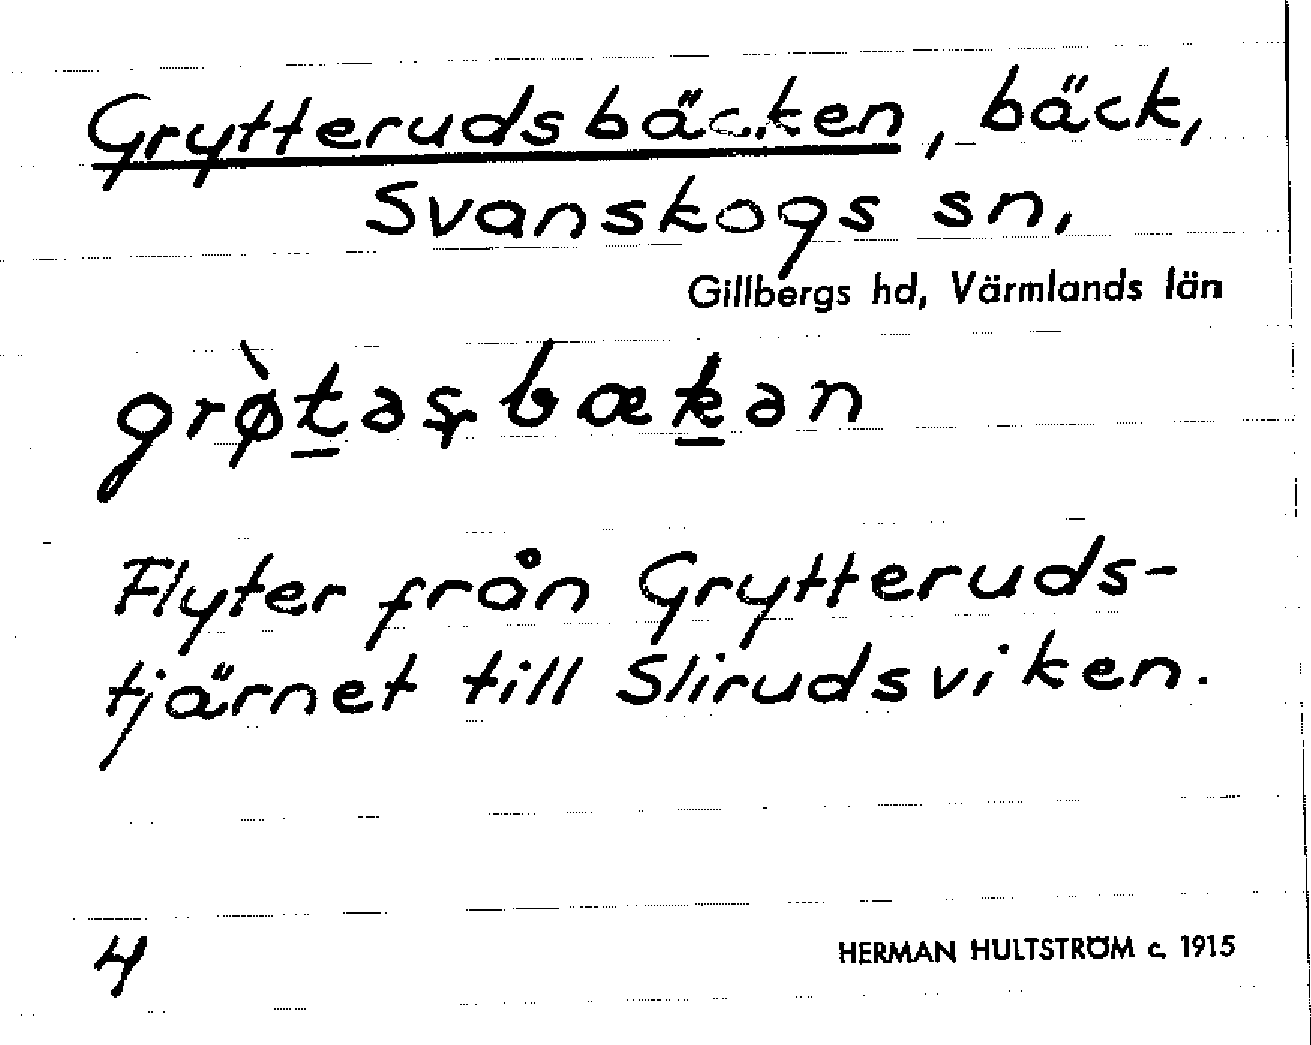 Grytterudsbäcken, bäck,
Svanskogs sn,
Gillbergs hd, Värmlands län
grø̀t̲əʂbœk̲ən
Flyter från Grytteruds-
tjärnet till Slirudsviken.
4
HERMAN HULTSTRÖM c. 1915